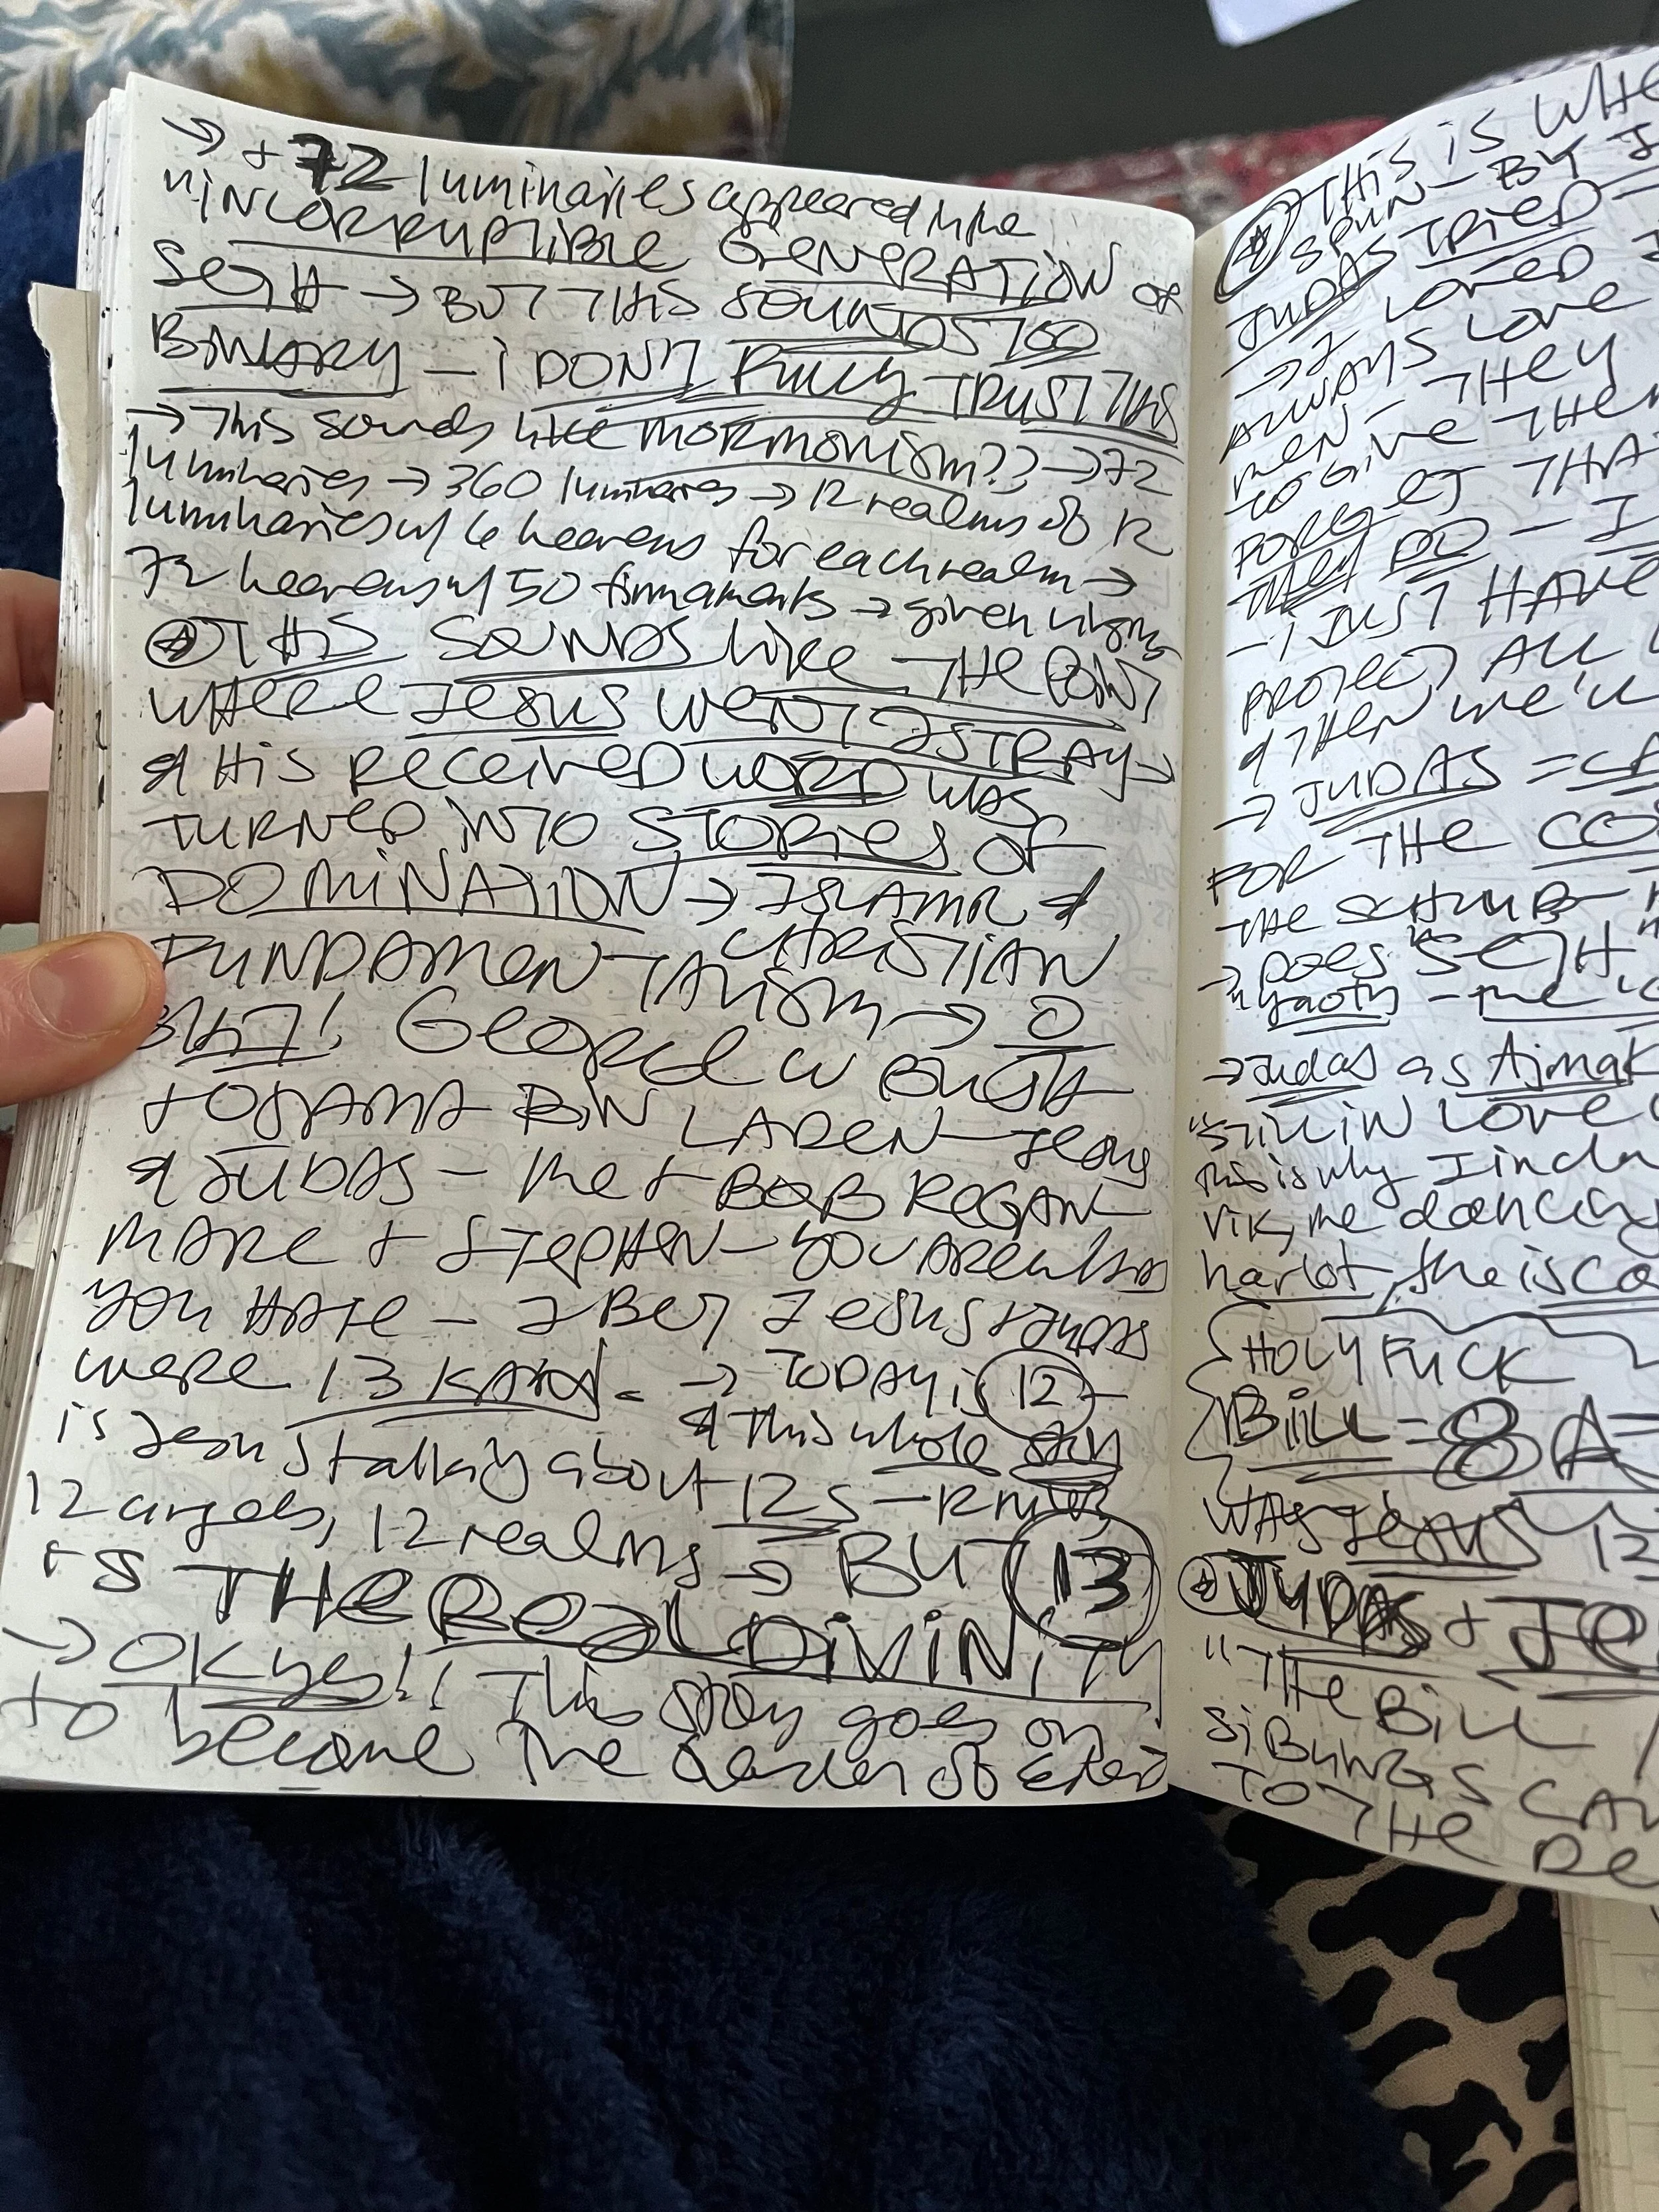 → + 72 luminaries appeared in the
"INCORRUPTIBLE GENERATION OF
SETH → BUT THIS SOUNDS TOO
BINARY — i DON'T FULLY TRUST THIS
→ This sounds like MORMONISM?? → 72
luminaries → 360 luminaries → 12 realms of 12
luminaries w/ 6 heavens for each realm →
72 heavens w/ 50 firmaments → given virgins
THIS SOUNDS like THE POINT
WHERE JESUS WENT ASTRAY →
& HIS RECEIVED WORD WAS
TURNED INTO STORIES OF
DOMINATION → ISLAMIC &
CHRISTIAN
FUNDAMENTALISM → 0
BUT! GEORGE W BUSH
+ OSAMA BIN LADEN — Jesus
& JUDAS — me + BOB REGAN
MARC + STEPHEN — YOU ARE who
YOU HATE — I BET JESUS + JUDAS
were 13 KAN → TODAY is 12 —
& this whole story
is Jesus talking about 12s — 12
12 angels, 12 realms → BUT 13
is THE REAL DIVINITY
→ OK yes!! This story goes on
to become the
THIS IS WHE
SPUN — BY J
JUDAS TRIED
→ I LOVED
ALWAYS LOVE
MEN — THEY
TO GIVE THEM
FORGET THAT
THEY DO — I
— I JUST HAVE
PROTECT ALL
& THEN WE'LL
→ JUDAS = CA
FOR THE CO
THE
→ DOES "SETH"
"yaoth — the "C
→ Judas as Ajmak
"STILL IN LOVE
this is why I inclu
Vik, the dancing
harlot, the isca
HOLY FUCK
BILL = 8 A
WAS JESUS 12
JUDAS + JE
"THE BILL
SIBLINGS CAN
TO THE DE